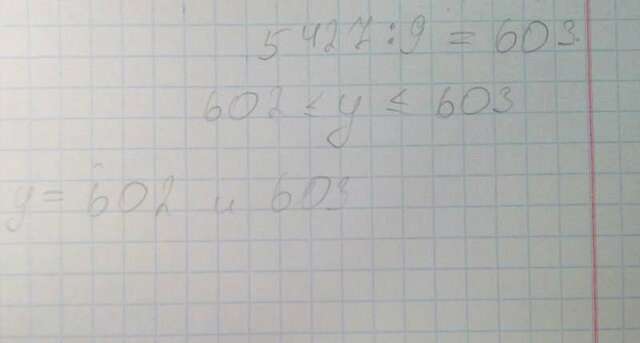 5427:9 = 603
602 ≤ y ≤ 603
y = 602 и 603